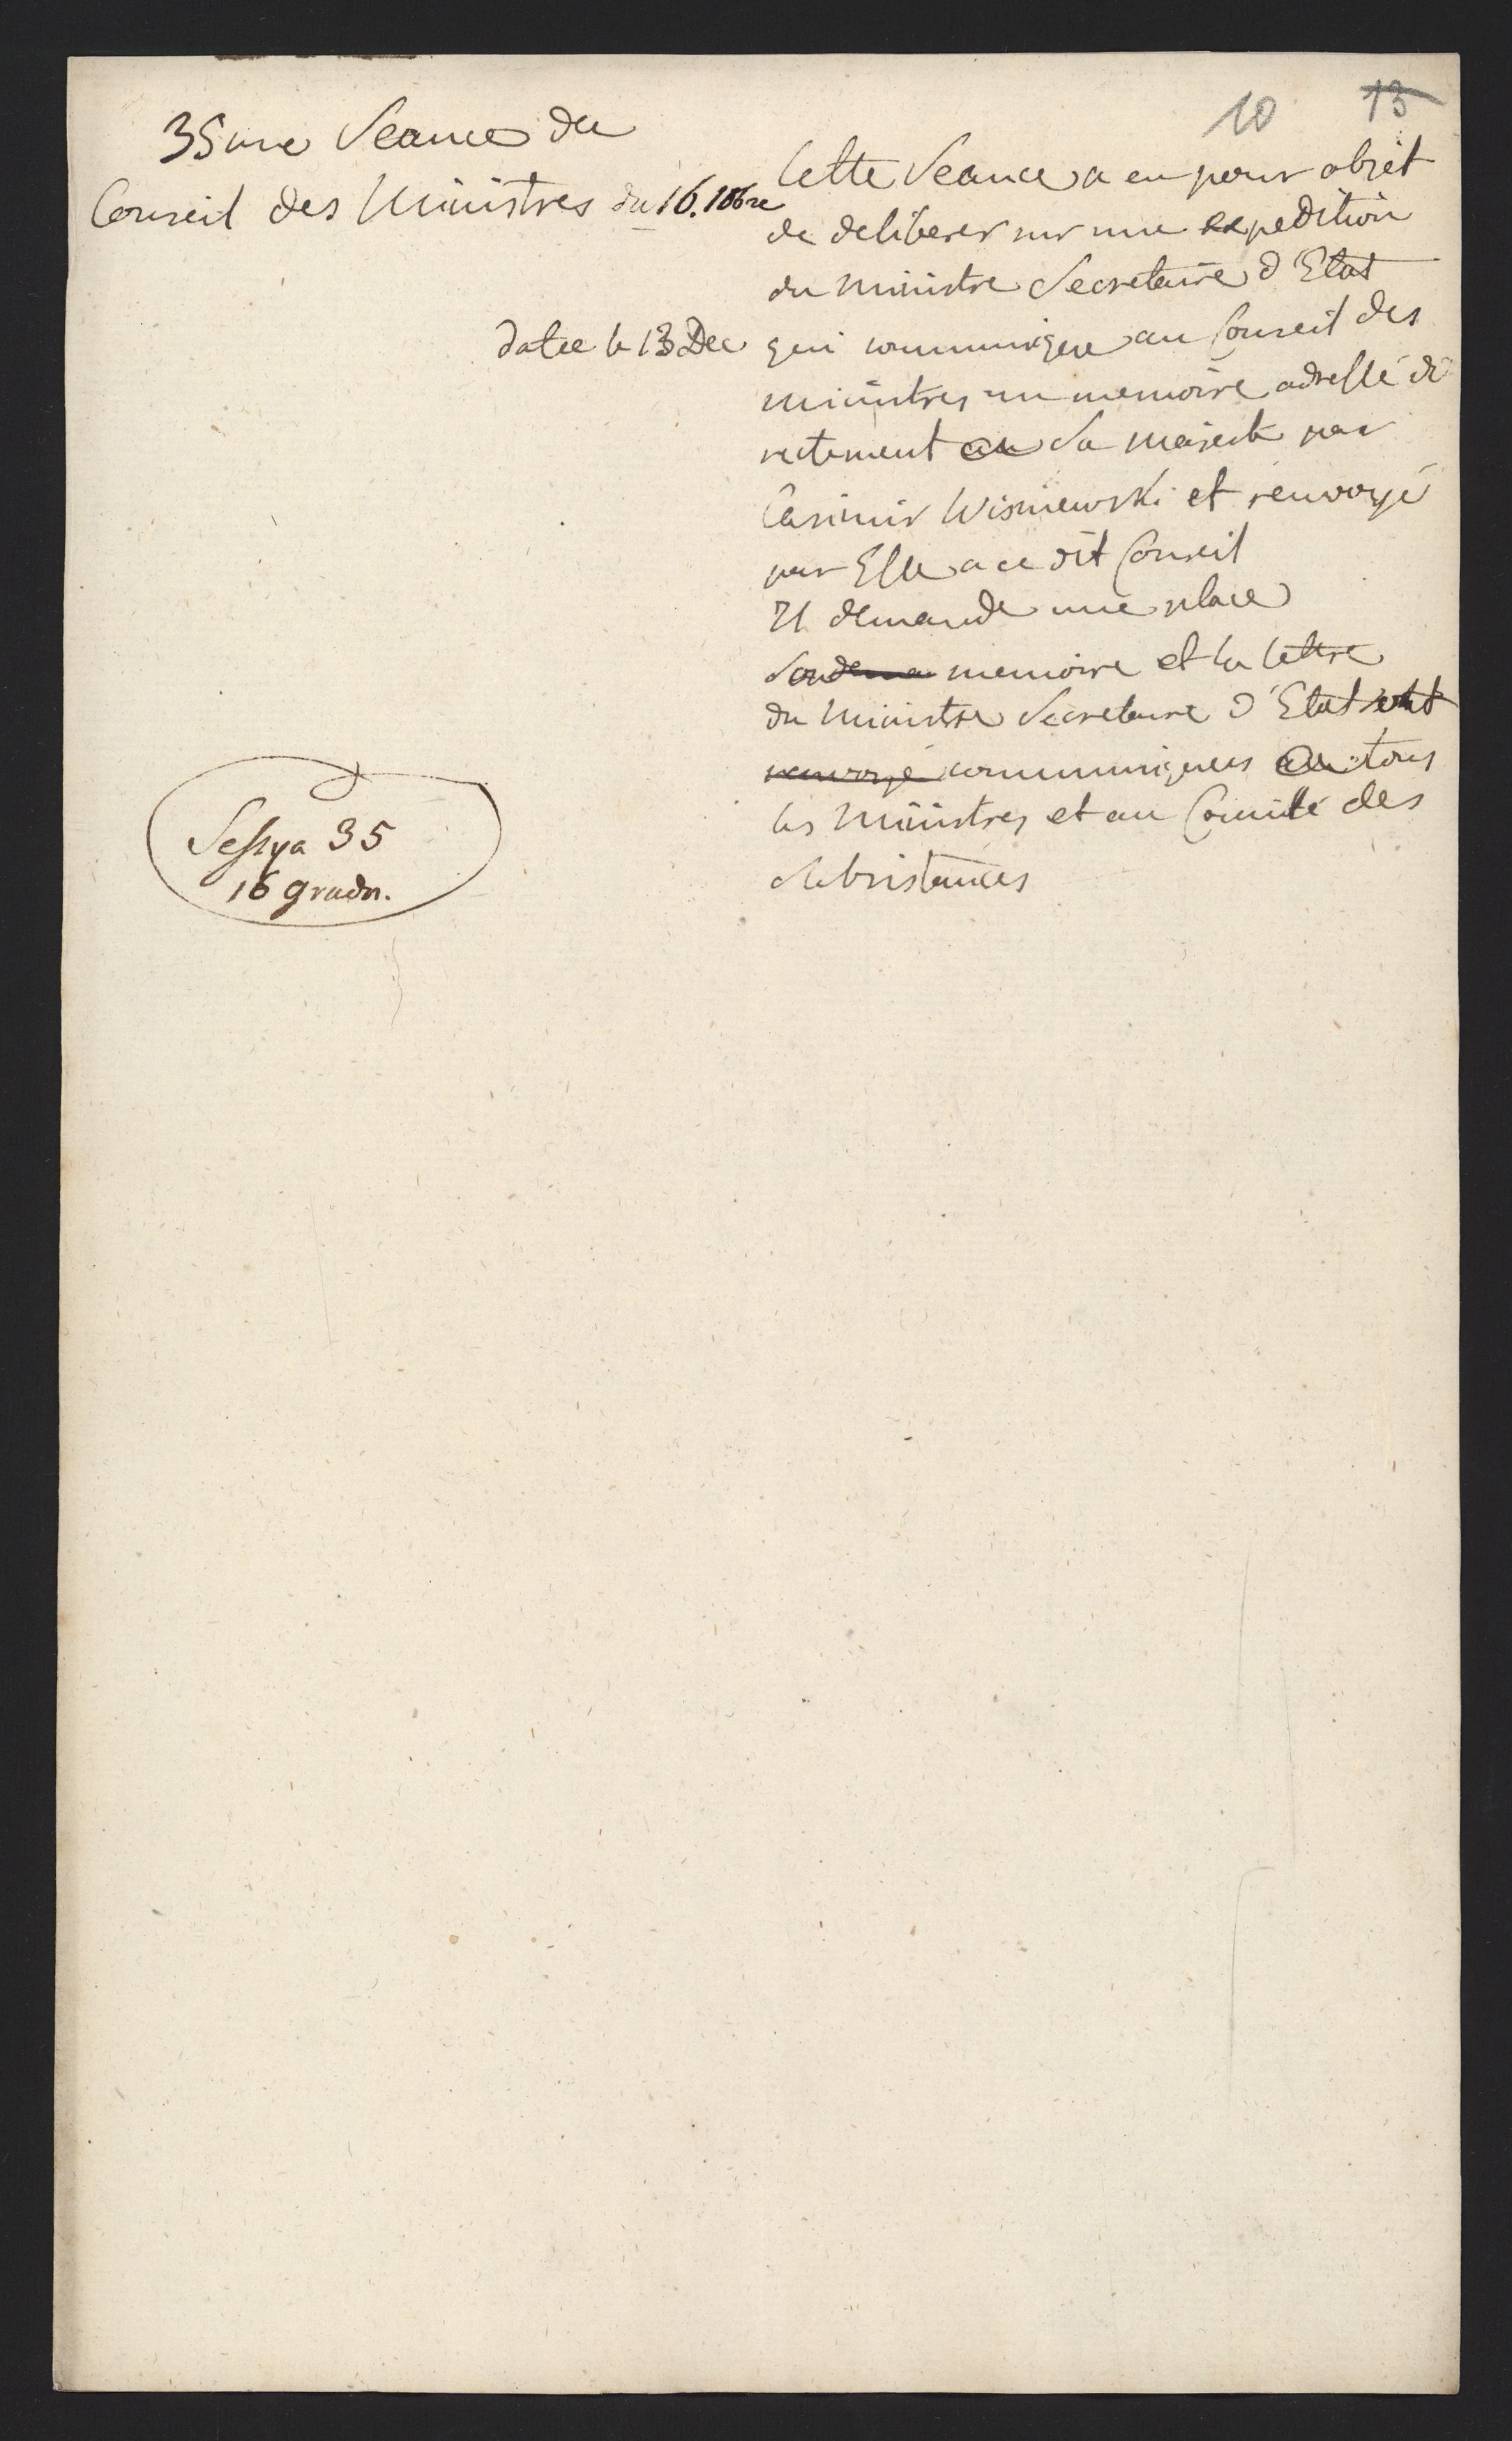 10 13
35me Seance du
Conseil des Ministres du 16. 10bre
Cette Seance a eu pour objet
de deliberer sur une expedition
du Ministre Secretaire d'Etat
datee le 13 Dec
qui communique au Conseil des
ministres un memoire adressé di
rectement a Sa Majesté par
Casimir Wisniewski et renvoyé
par Elle a ce dit Conseil
Il demande une place
Son memoire et la lettre
du Ministre Secretaire d'Etat sont
renvoyé communiques a tous
les Ministres et au Comité des
Subsistances
Sessya 35
16 grudn.